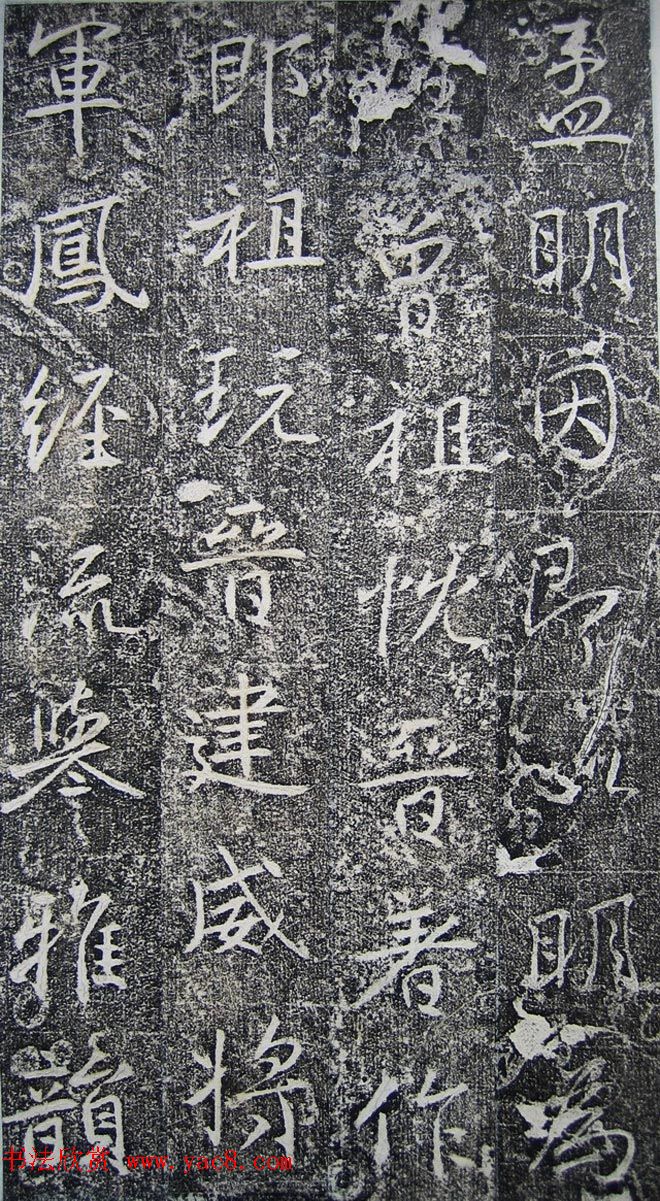 孟明因即以明為
曾祖忱晉著作
郎祖玩晉建威將
軍鳳經流譽雅韻
书法欣赏 www.yac8.com